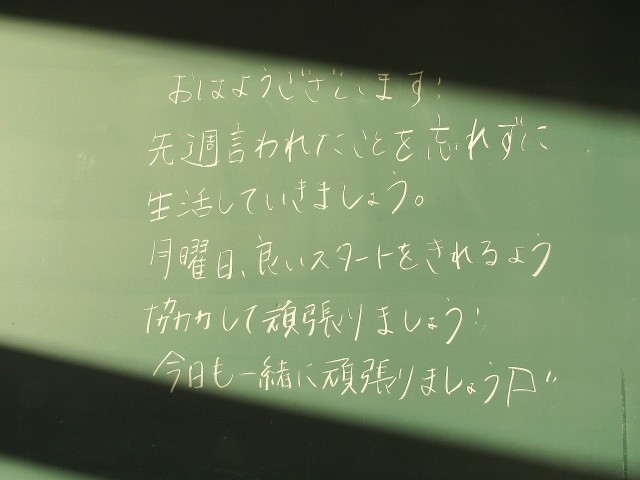 おはようございます!
先週言われたことを忘れずに
生活していきましょう。
月曜日、良いスタートをきれるよう
協力して頑張りましょう!
今日も一緒に頑張りましょう